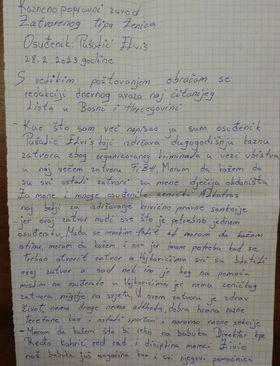 Kazneno popravni zavod
Zatvorenog tipa Zenica
Osuđenik: Pušalić Elvis
28.2.2023 godine
S velikim poštovanjem obraćam se
redakciji dnevnog avaza naj čitanijeg
lista u Bosni i Hercegovini
- Kao što sam već napisao ja sam osuđenik
Pušalić Elvis koji izdržava dugogodišnju kaznu
zatvora zbog organizovanog kriminala u vezi ubistva
u naj većem zatvoru FrBH, Moram da kažem da
su svi ostali zatvori za mene dječija obdaništa
Za mene i mnoge osuđenike
naj bolji za izdržavanje krivično pravne sankcije
jer ovaj zatvor nudi sve što je potrebno jednom
osuđeniku. Mada se nemam žalit ali moram da kažem
istinu, moram da kažem i ovo jer imam potrebu kad se
trebao otvorit zatvor u Vojkovićima svi su
ovaj zatvor a sad nek im je bog na pomoći
mislim na osuđenike u Vojkovićima jer nema zeničkog
zatvora nigdje na svijetu, U ovom zatvoru je zdrav
život, nema droge nema alkohola, dobra hrana razne
teretane kao i ostali sportovi i naravno razne sekcije
- Moram da kažem što bi reko na babuka Direktor kpz
Redžo Kahrić, red rad i disciplina momci Živio
naš babuka još godina kao i svi njegovi pomoćnici